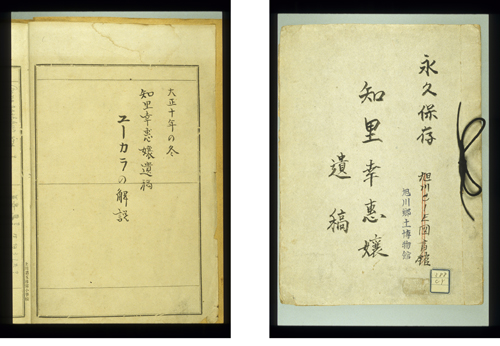 大正十年の冬
知里幸惠嬢遺稿
ユーカラの解説
永久保存
知里幸惠嬢
遺稿
旭川郷土博物館